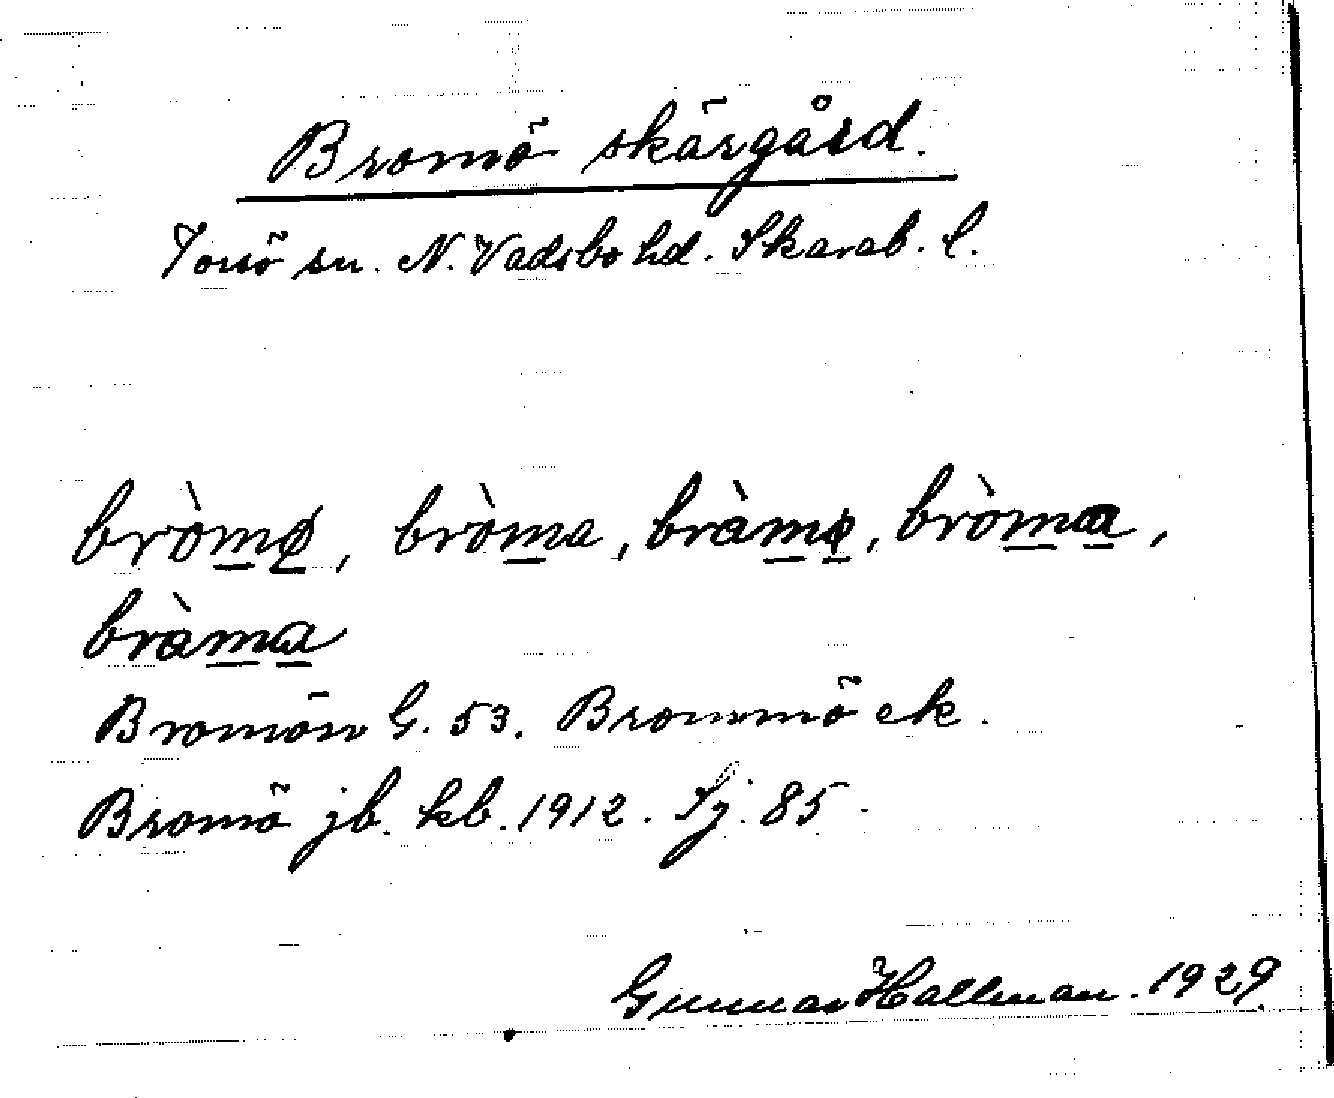 Bromö skärgård.
Torsö sn. N. Vadsbo hd. Skarab. l.
bròmø, bròma, bràmø, bròmɑ,
bràmɑ
Bromön G. 53. Brommö ek.
Bromö jb. kb. 1912. Sj. 85.
Gunnar Hallman. 1929.